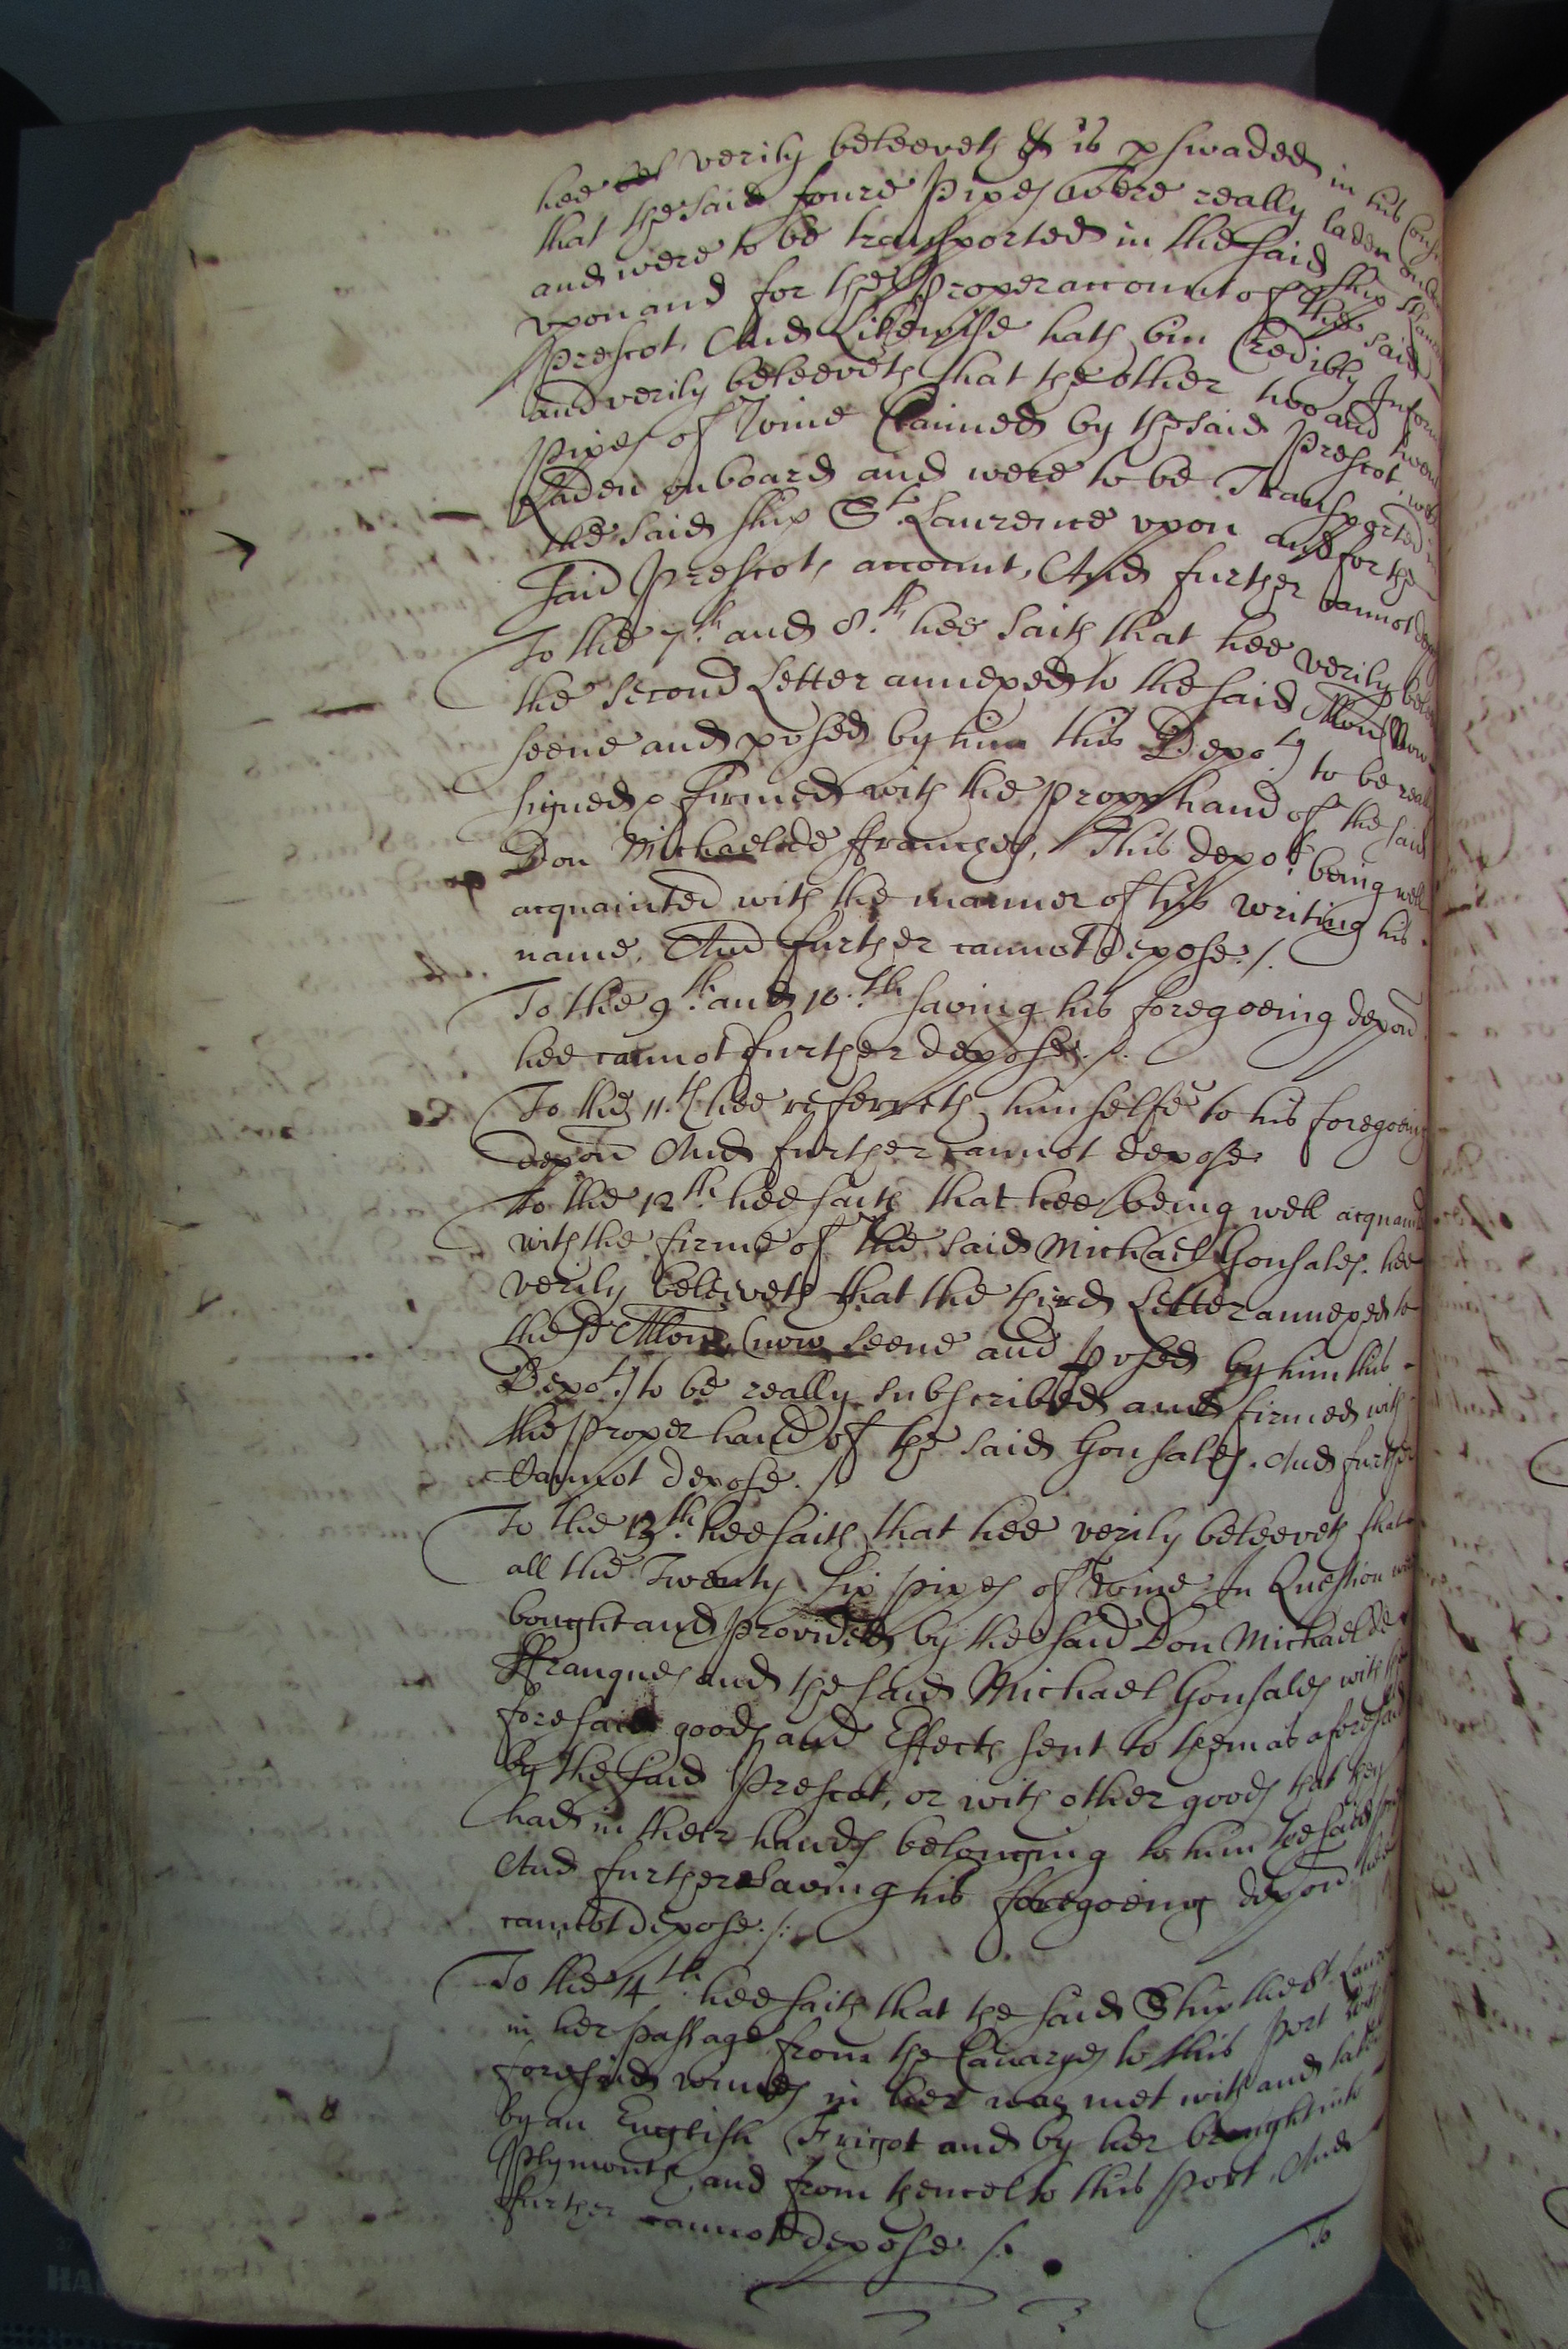 hee verily beleeveth & is pswaded in his Consc
that the said foure Pipes were really laden
and were to be transported in the said ship St Laur
upon and for the Proper account of the said
Prescot, And Likewise hath bin Credibly Inform
and verily beleeveth that the other two and twen
Pipes of Wine Claimed by the said Prescot, we
Laden onboard and were to be Transported in
the said ship St. Laurence upon and for the
said Prescots account, And further cannot dep
To the 7th. and 8th. hee saith that hee verily belee
the second Letter annexed to the said Allon (Now
seene and pvsed by him this Depot.) to be really
signed & firmed with the proper hand of the said
Don Michael de ffranques, This depot. being well
acquainted with the manner of his writing his
name, And further cannot depose./.
To the 9th. and 10.th saving his foregoeing depon
hee cannot further depose./.
To the 11.th hee referreth himselfe to his foregoeing
depon And further cannot depose
To the 12th. hee saith that hee being well acquand
with the firme of the said Michael Gonsales. hee
verily beleiveth that the third Letter annexed to
the sd Allon, (now seene and pvsed by him this
Depot.) to be really subscribed and firmed with
the Proper hand of the said Gonsales. And further
Cannot depose./.
To the 13th. hee saith that hee verily beleeveth that
all the Twenty six pipes of wine In Question we
bought and Provided by the said Don Michael de
ffranques and the said Michael Gonsales with the
foresaid goods and Effects sent to them as aforesaid
by the said Prescot, or with other goods that they
had in their hands belonging to him the said Pres
And further saving his foregoeing depon hee
cannot depose./:
To the 14th. hee saith that the said Ship the St. Laur
in her passage from the Canaryes to this Port with
foresaid wines in her was met with and taken
by an English Frigot and by her brought into
Plymouth and from thence to this Port, And
further cannot depose./.
To